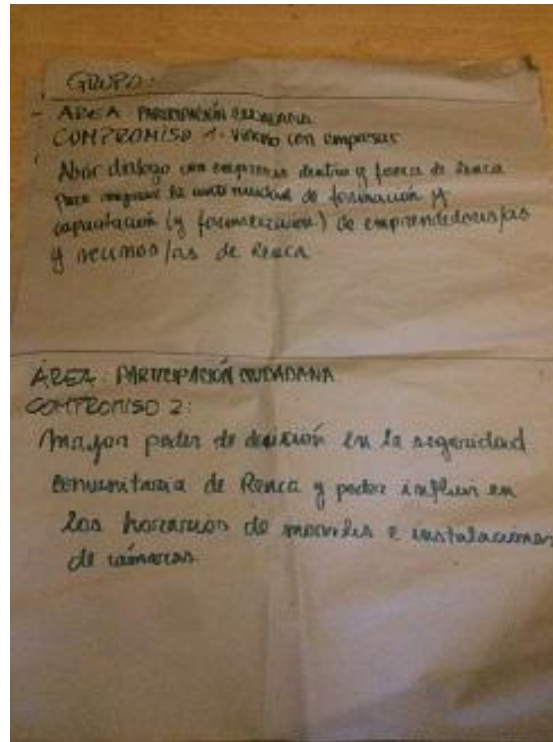 GRUPO:
- ÁREA: PARTICIPACIÓN CIUDADANA
COMPROMISO 1: Vínculo con empresas
Abrir dialogo con empresas dentro y fuera de Renca
para mejorar la continuidad de formación y
capacitación (y formalización) de emprendedores/as
y vecinos/as de Renca
ÁREA: PARTICIPACIÓN CIUDADANA
COMPROMISO 2:
Mayor poder de decisión en la seguridad
comunitaria de Renca y poder influir en
los horarios de moviles e instalaciones
de cámaras.